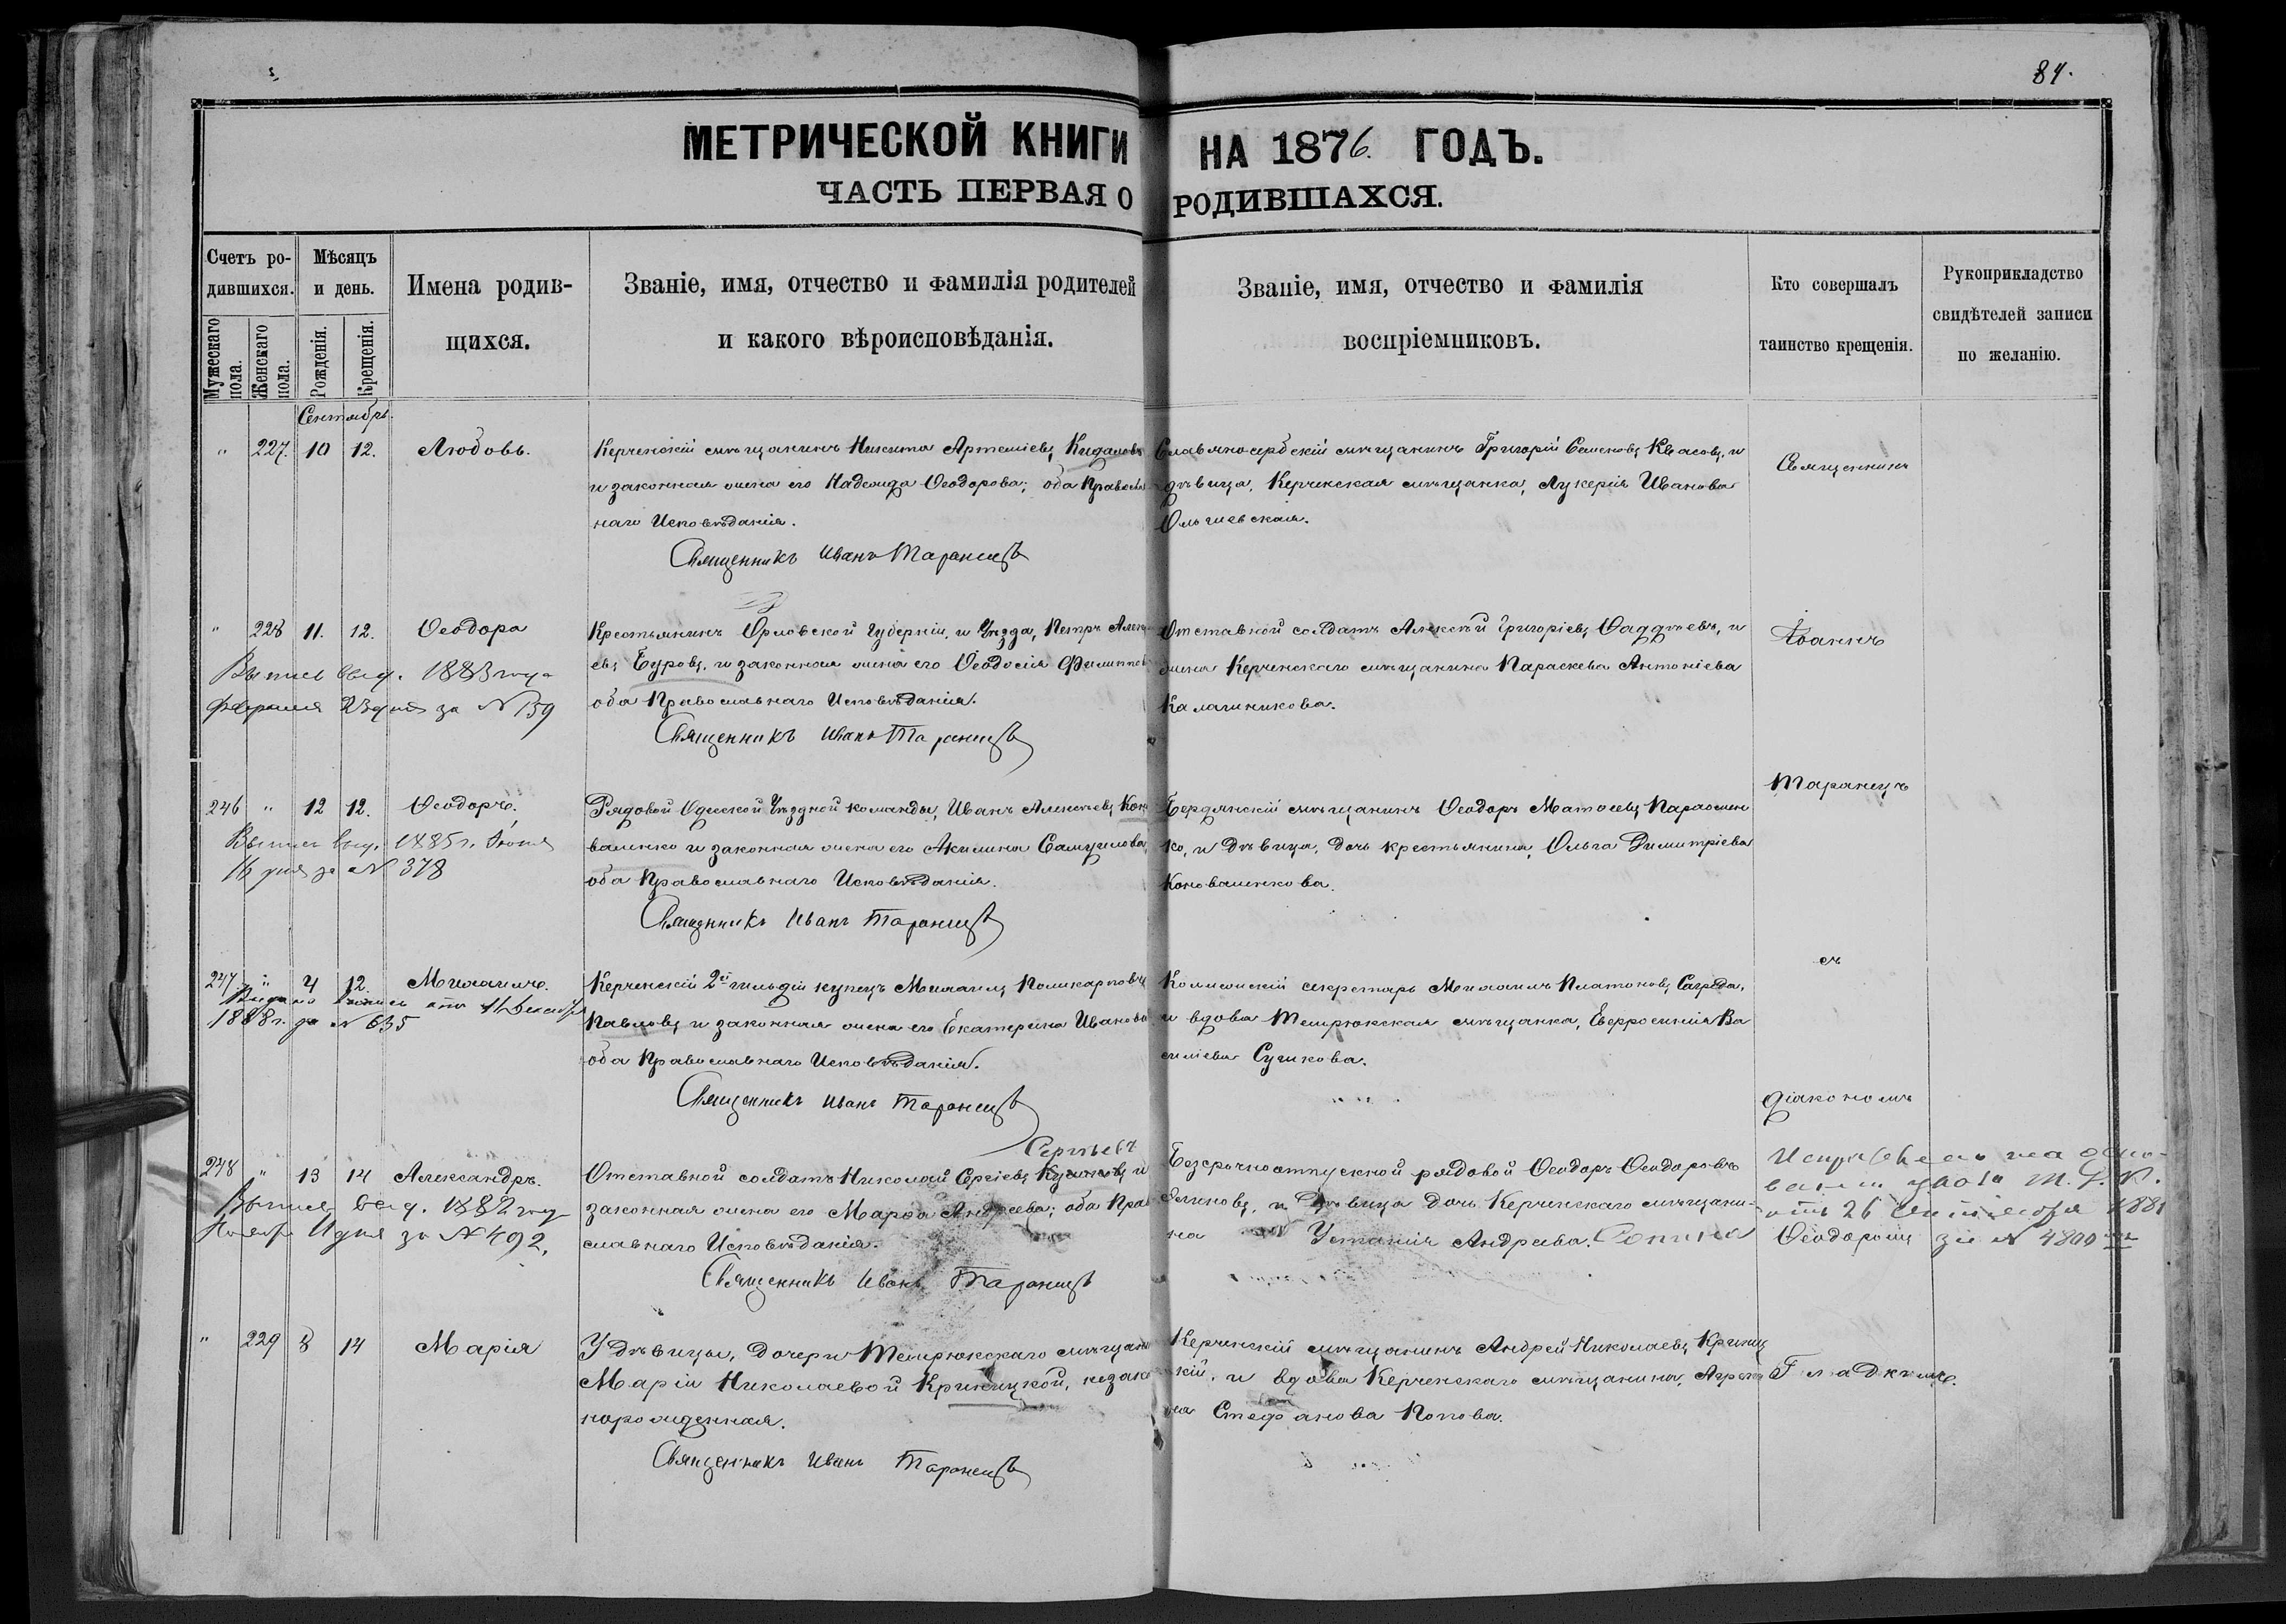 84.
МЕТРИЧЕСКОЙ КНИГИ НА 1876. ГОДЪ.
ЧАСТЬ ПЕРВАЯ О РОДИВШАХСЯ.
Счетъ родившихся.
Мужескаго пола.
Женскаго пола.
Мѣсяцъ и день.
Рожденія.
Крещенія.
Имена родив-
щихся.
Званіе, имя, отчество и фамилія родителей
и какого вѣроисповѣданія.
Званіе, имя, отчество и фамилія
воспріемниковъ.
Кто совершалъ
таинство крещенія.
Рукоприкладство
свидѣтелей записи
по желанію.
Сентябрь.
" 227. 10 12. Любовь.
Керченскій мѣщанинъ Никита Артеміевъ Кидаловъ
и законная жена его Надежда Ѳеодорова; оба Православ
наго Исповѣданія.
Священникъ Иванъ Таранецъ
Славяносербскій мѣщанинъ Григорій Семеновъ Квасовъ, и
дѣвица, Керченская мѣщанка, Лукерія Иванова
Ольшевская.
Священникъ
" 228 11. 12. Ѳеодора
Выпись выд. 1883 года
февраля 23 дня за № 159
Крестьянинъ Орловской Губерніи, и Уѣзда, Петръ Алек
евъ Буровъ, и законная жена его Ѳеодосія Филиппов
оба Православнаго Исповѣданія.
Священникъ Иванъ Таранецъ
Отставной солдатъ Алексѣй Григоріевъ Ѳаддѣевъ, и
жена Керченскаго мѣщанина Параскева Антоніева
Калашникова.
Іоаннъ
246 " 12 12. Ѳеодоръ.
Выпись выд. 1885 г. Іюня
16 дня за № 378
Рядовой Одесской Уѣздной команды, Иванъ Алексѣевъ Коно
валенко и законная жена его Акилина Самуилова,
оба Православнаго Исповѣданія.
Священникъ Иванъ Таранецъ
Бердянскій мѣщанинъ Ѳеодоръ Матѳеевъ Парасмен
ко, и дѣвица, дочь крестьянина, Ольга Димитріева
Коноваленкова.
Таранецъ
247 " 4 12. Михаилъ.
Выдано выпись отъ 11 Декабря
1888 г. за № 635
Керченскій 2й гильдіи купецъ Михаилъ Поликарповъ
Павловъ и законная жена его Екатерина Иванова
оба Православнаго Исповѣданія.
Священникъ Иванъ Таранецъ
Коллежскій секретарь Михаилъ Платоновъ Сагреда,
и вдова Темрюкская мѣщанка, Евфросинія Ва
силіева Сушкова.
съ
діакономъ
248 " 13 14 Александръ.
Выпись выд. 1882 году
Ноябр. 11 дня за № 492,
Сергѣевъ
Отставной солдатъ Николай Сергіевъ и
законная жена его Марѳа Андреева; оба Право
славнаго Исповѣданія.
Священникъ Иванъ Таранецъ
Безсрочноотпускной рядовой Ѳеодоръ Ѳеодоровъ
и дѣвица дочь Керченскаго мѣщани-
на Устинія Андреева. Сопина
Исправлено на осно-
ваніи указа Т. Д. К.
отъ 26 Сентября 1881
за № 4800
Ѳеодоромъ
" 229 8 14 Марія
У дѣвицы, дочери Темрюкскаго мѣщани
Маріи Николаевой Криницкой, незако
норожденная.
Священникъ Иванъ Таранецъ
Керченскій мѣщанинъ Андрей Николаевъ Криниц
кій, и вдова Керченскаго мѣщанина, Агрепи
на Стефанова Попова.
Гладкимъ.